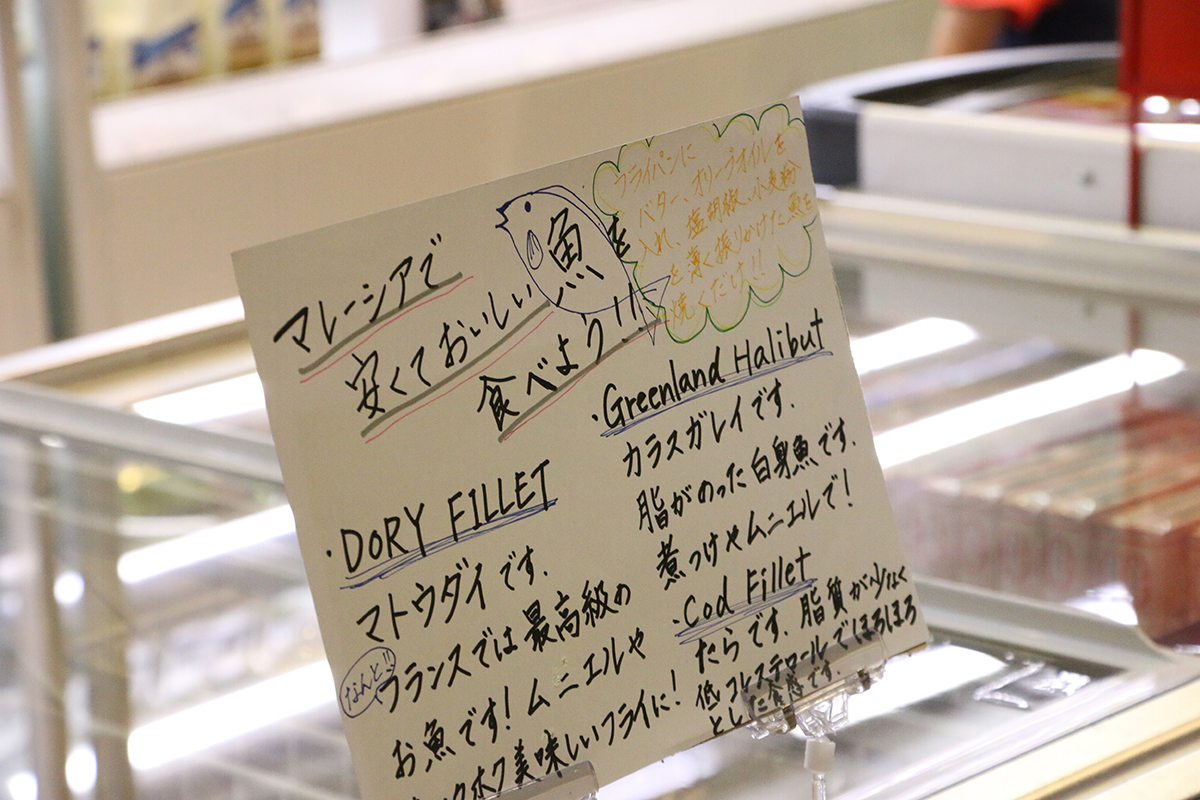 マレーシアで
安くておいしい魚を
食べよう!!
フライパンに
バター、オリーブオイルを
入れ、塩胡椒、小麦粉
を薄く振りかけた魚を
焼くだけ!!
・DORY FILLET
マトウダイです.
なんと!!
フランスでは最高級の
お魚です!ムニエルや
ホク美味しいフライに!
・Greenland Halibut
カラスガレイです.
脂がのった白身魚です.
煮つけやムニエルで!
・Cod Fillet
たらです.脂質が少なく
低コレステロールでほろほろ
とした食感です.